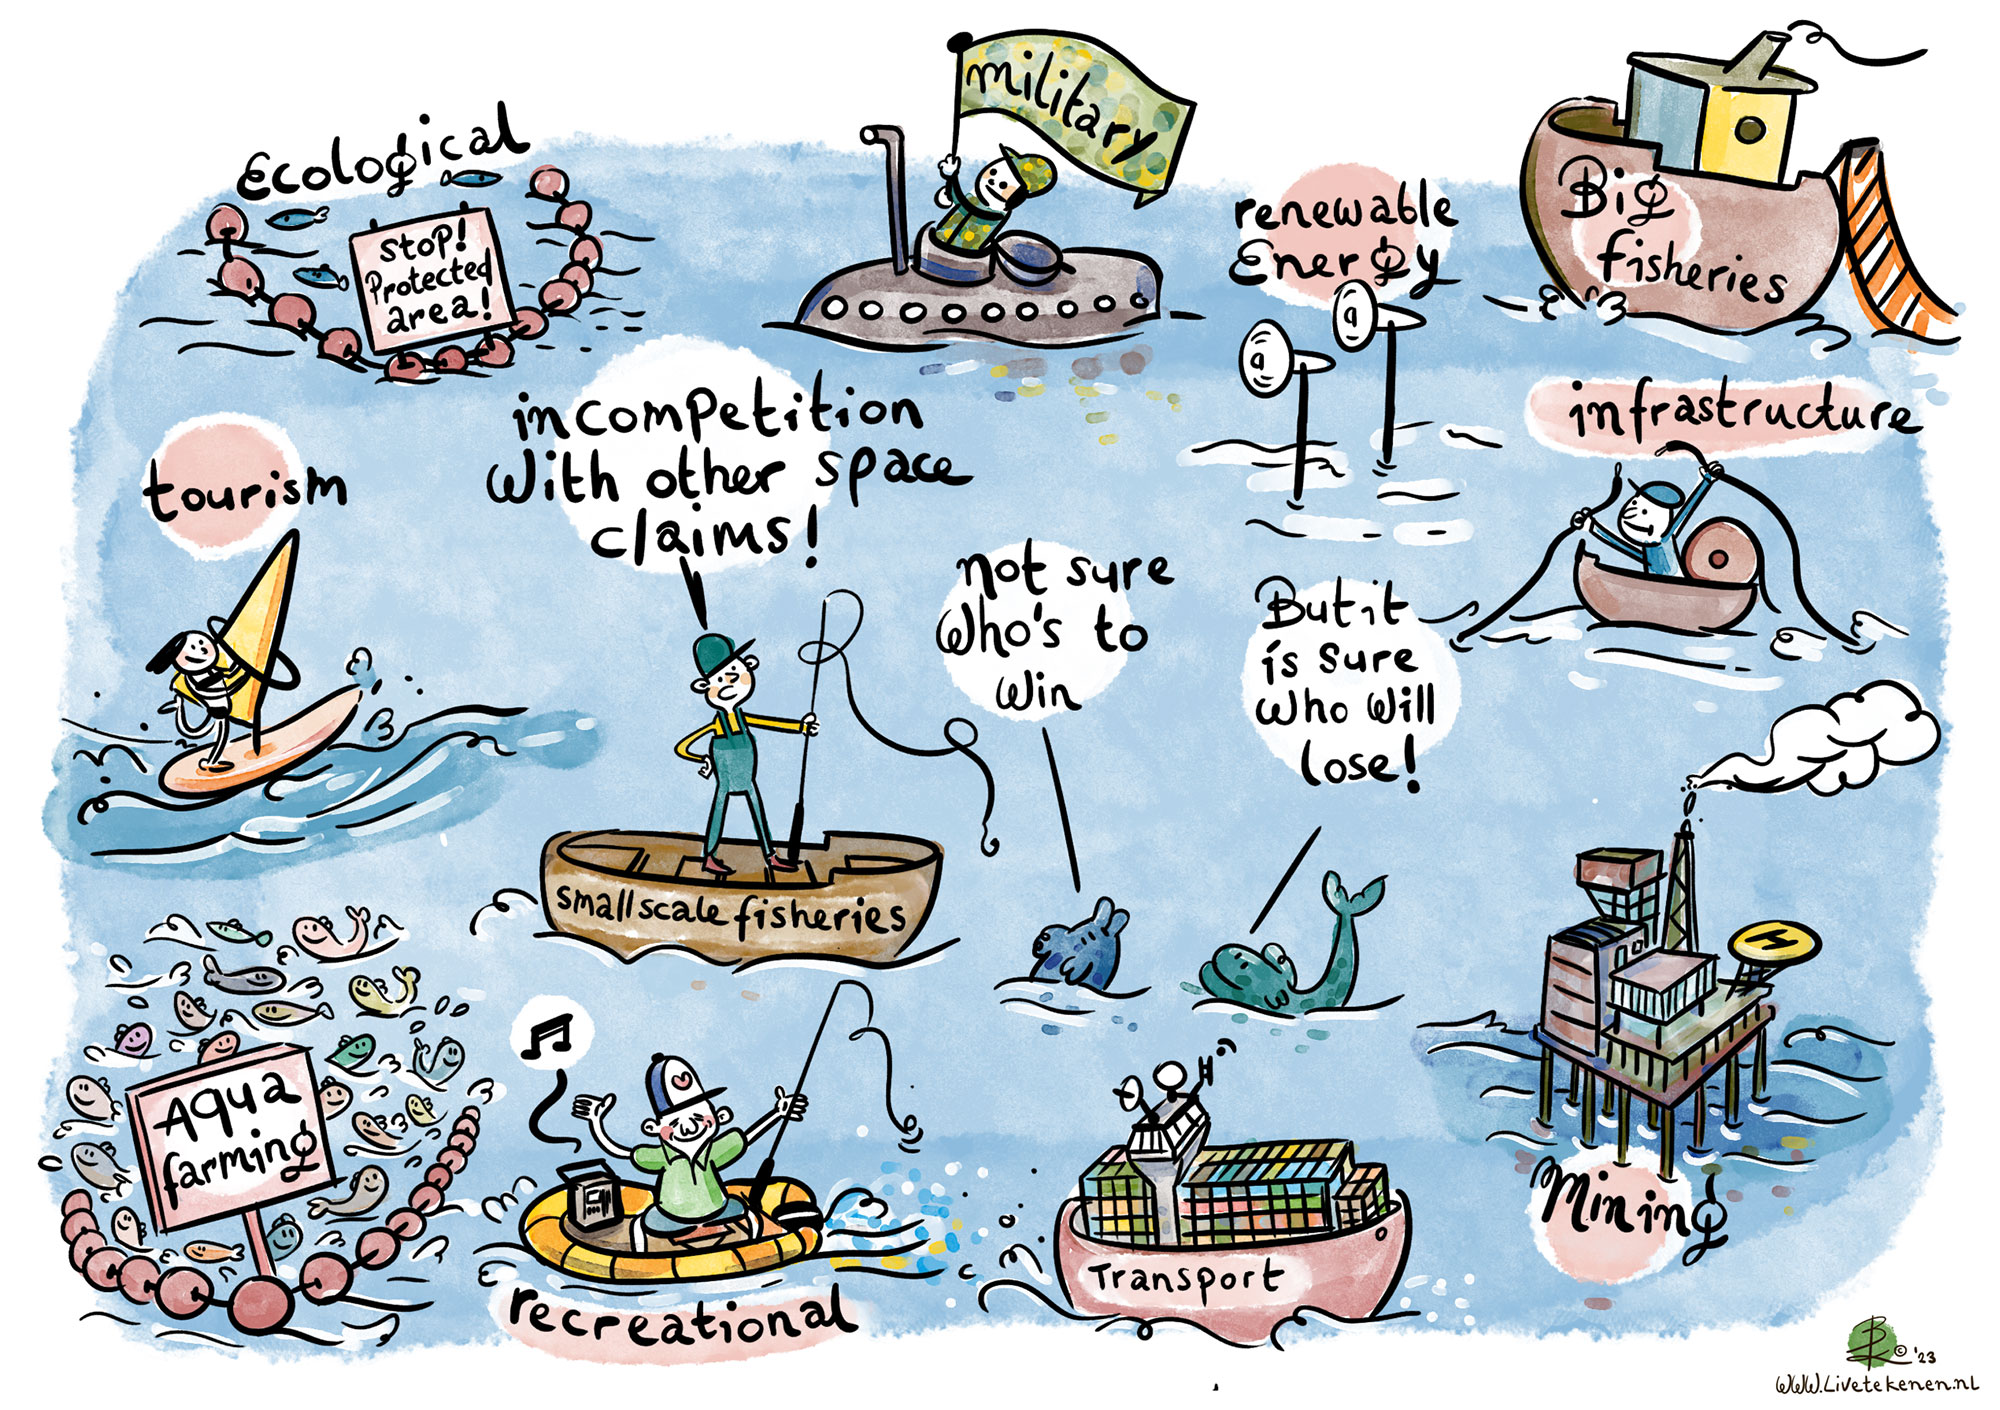 Ecological
stop!
Protected
area!
military
renewable
Energy
Big
fisheries
infrastructure
tourism
in competition
with other space
claims!
not sure
who's to
win
But it
is sure
who will
lose!
small scale fisheries
Aqua
farming
recreational
Transport
H
Mining
© '23
www.livetekenen.nl